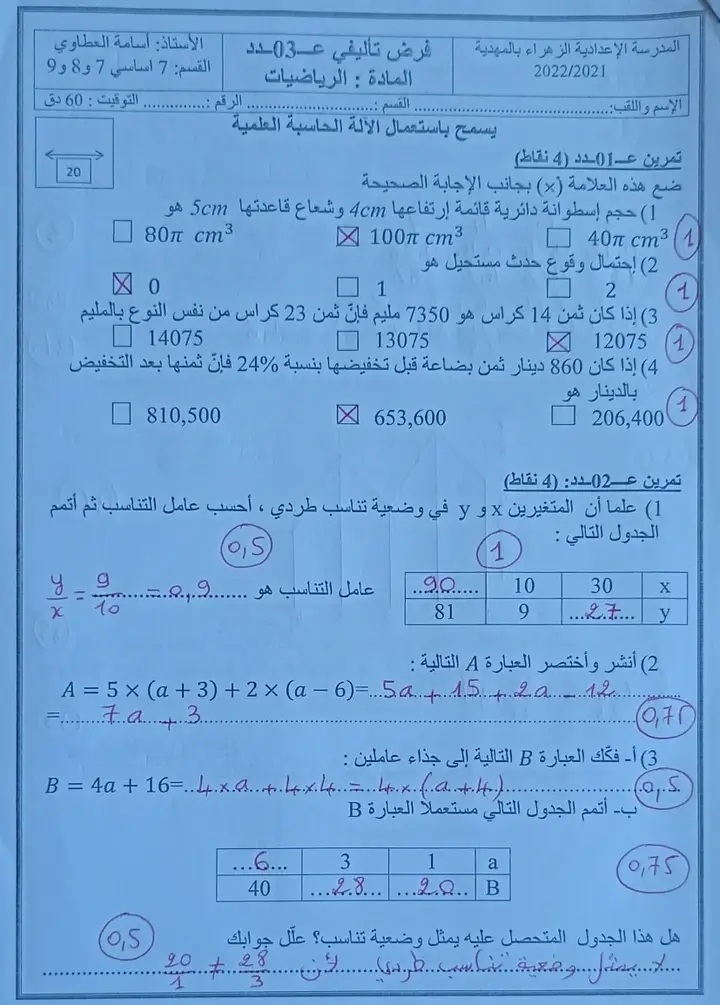 المدرسة الإعدادية الزهراء بالمهدية
2022/2021
فرض تأليفي عــ03ــدد
المادة : الرياضيات
الأستاذ: أسامة العطاوي
القسم: 7 اساسي 7 و8 و9
الإسم واللقب:.................................................. القسم :.............................. الرقم :............... التوقيت : 60 دق
يسمح باستعمال الآلة الحاسبة العلمية
20
تمرين عــ01ــدد (4 نقاط)
ضع هذه العلامة (x) بجانب الإجابة الصحيحة
1) حجم إسطوانة دائرية قائمة إرتفاعها 4cm وشعاع قاعدتها 5cm هو
☐ 40π cm³ ☒ 100π cm³ ☐ 80π cm³
1
2) إحتمال وقوع حدث مستحيل هو
☐ 2 ☐ 1 ☒ 0
1
3) إذا كان ثمن 14 كراس هو 7350 مليم فإنّ ثمن 23 كراس من نفس النوع بالمليم
☒ 12075 ☐ 13075 ☐ 14075
1
4) إذا كان 860 دينار ثمن بضاعة قبل تخفيضها بنسبة 24% فإنّ ثمنها بعد التخفيض
بالدينار هو
☐ 206,400 ☒ 653,600 ☐ 810,500
1
تمرين عــ02ــدد: (4 نقاط)
1) علما أن المتغيرين x و y في وضعية تناسب طردي ، أحسب عامل التناسب ثم أتمم
الجدول التالي :
1
0,5
x 30 10 90
y 27 9 81
عامل التناسب هو y/x = 9/10 = 0,9
2) أنشر وأختصر العبارة A التالية :
A = 5 × (a + 3) + 2 × (a − 6)= 5a + 15 + 2a − 12
= 7a + 3
0,75
3) أ- فكّك العبارة B التالية إلى جذاء عاملين :
B = 4a + 16= 4×a + 4×4 = 4×(a+4)
0,5
ب- أتمم الجدول التالي مستعملا العبارة B
a 1 3 6
B 20 28 40
0,75
هل هذا الجدول المتحصل عليه يمثل وضعية تناسب؟ علّل جوابك
0,5
لا يمثل وضعية تناسب طردي لأن 28/3 ≠ 20/1